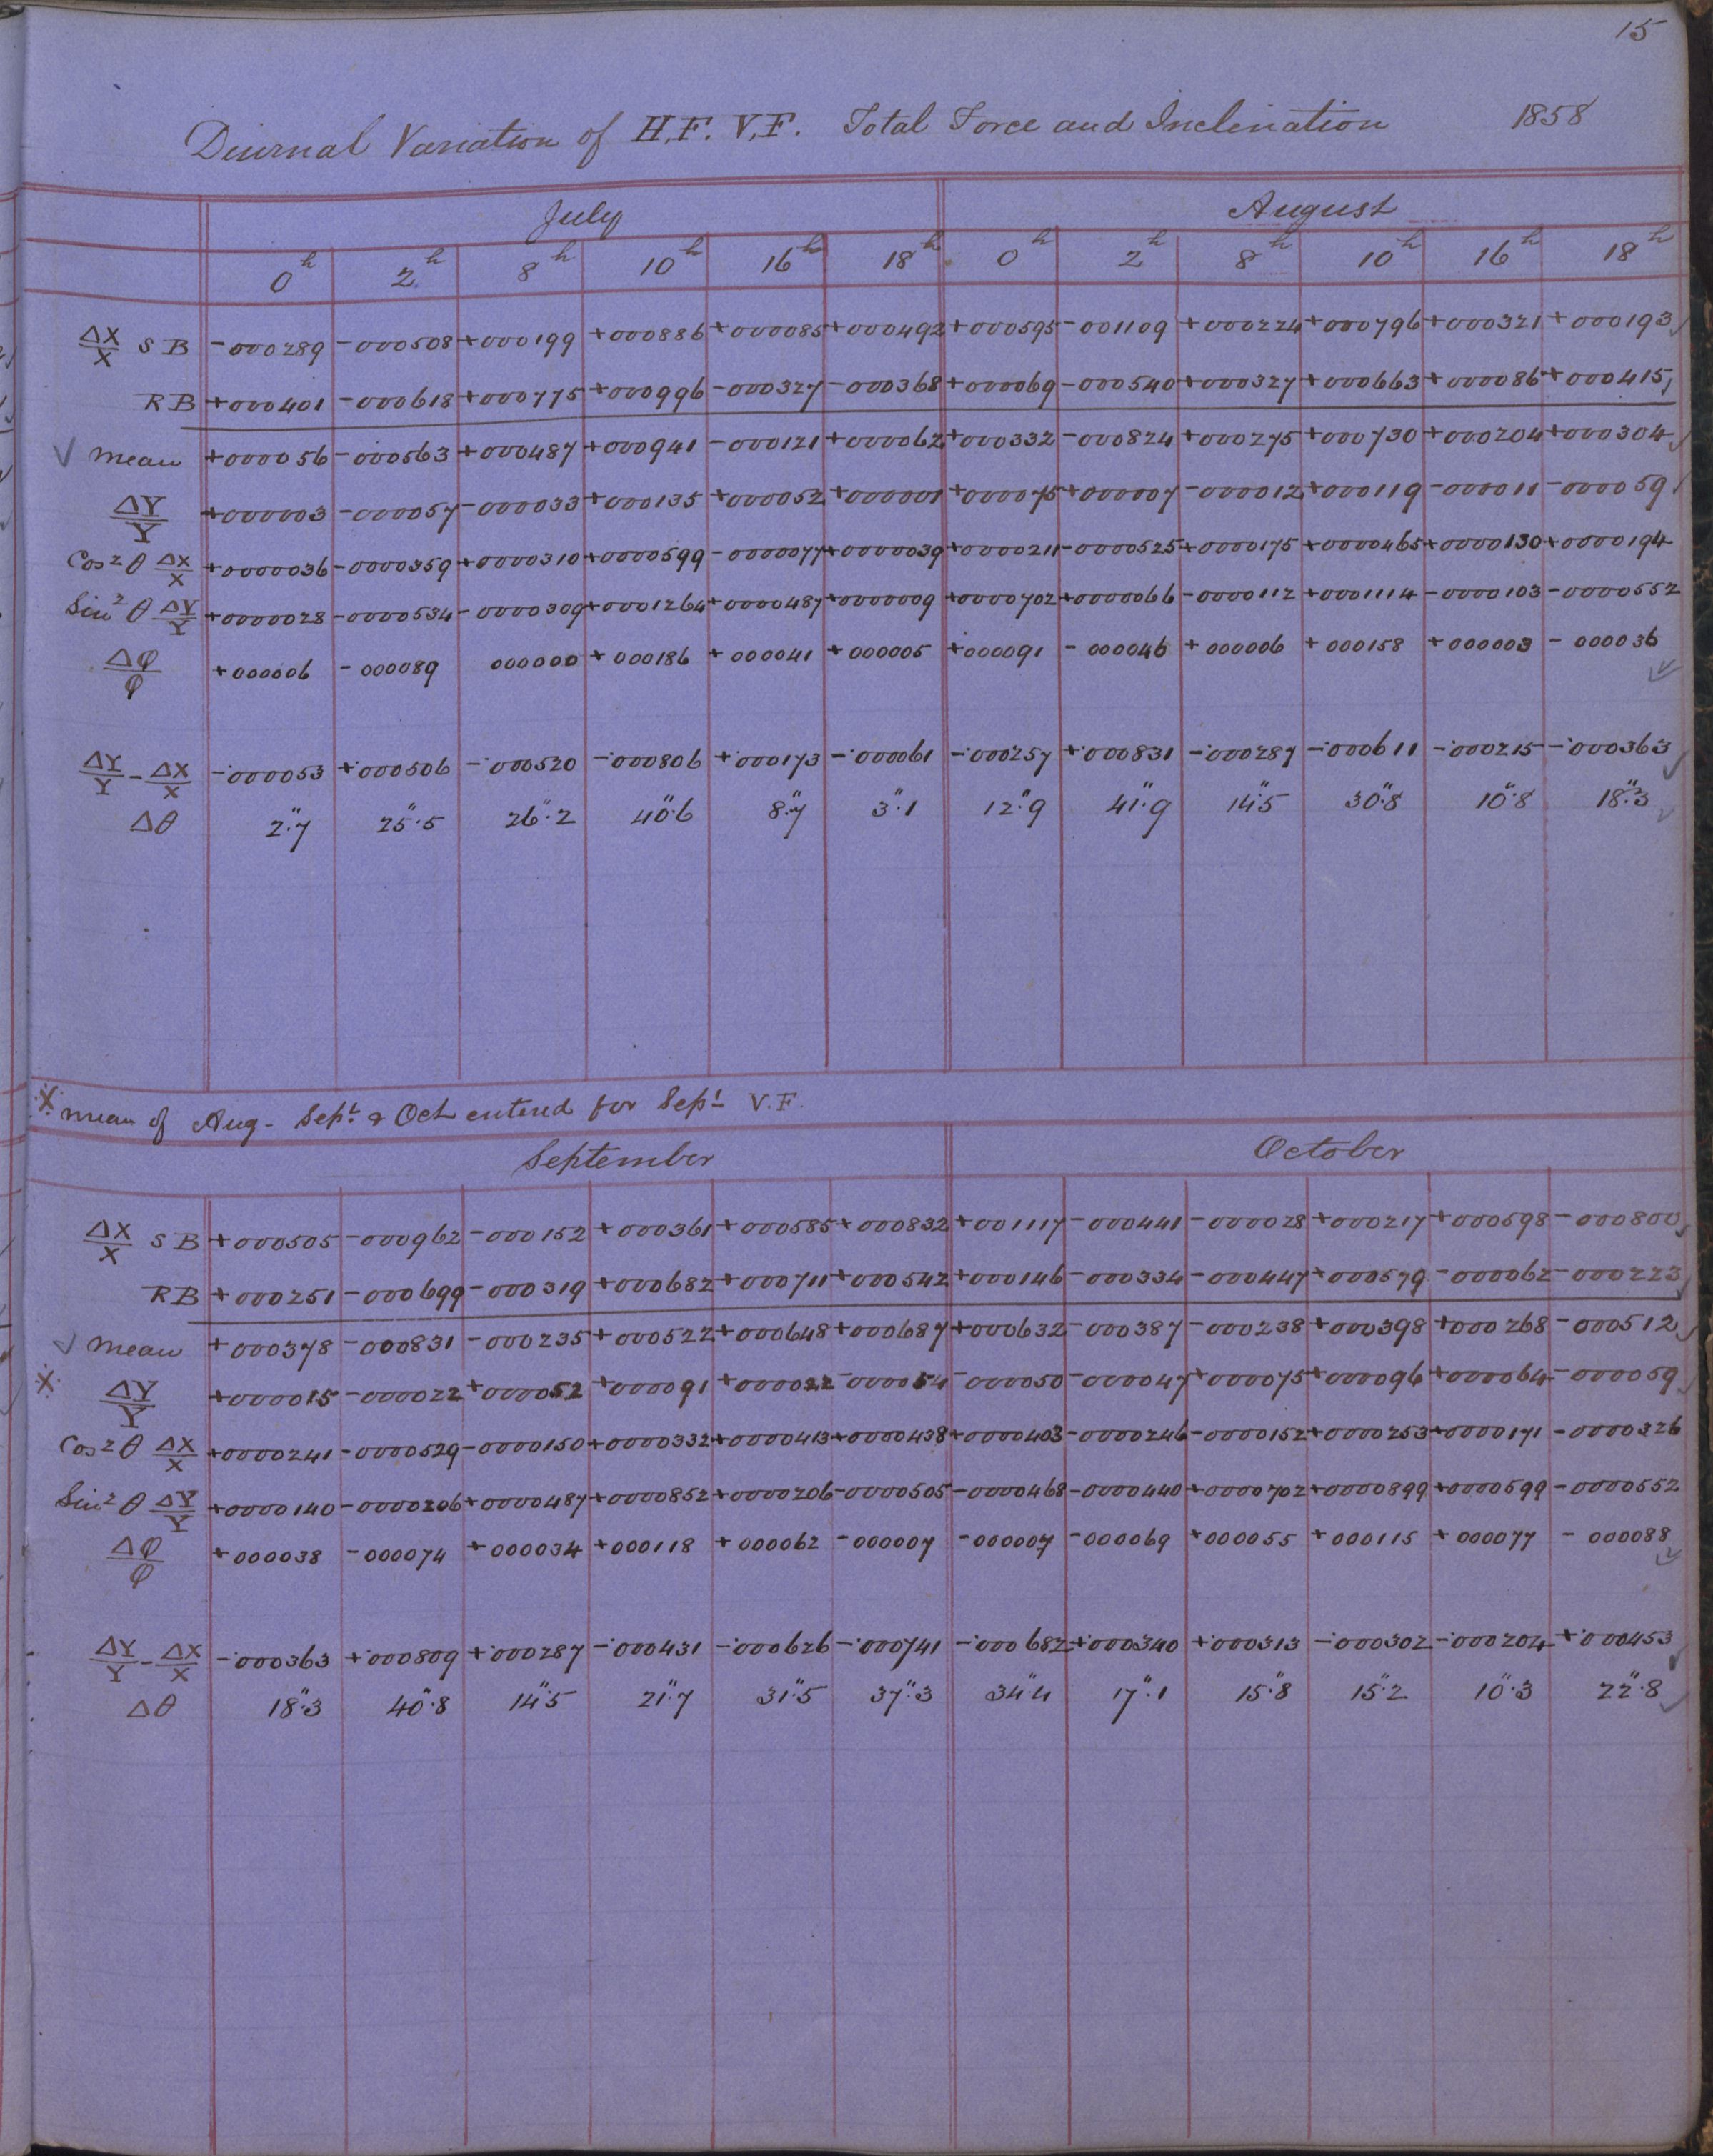 15
Diurnal Variation of H.F. V.F. Total Force and Inclination 1858
July August
0h 2h 8h 10h 16h 18h 0h 2h 8h 10h 16h 18h
ΔX/X S B -000289 -000508 +000199 +000886 +000085 +000492 +000595 -001109 +000224 +000796 +000321 +000193
R B +000401 -000618 +000775 +000996 -000327 -000368 +000069 -000540 +000327 +000663 +000086 +000415
√ mean +000056 -000563 +000487 +000941 -000121 +000062 +000332 -000824 +000275 +000730 +000204 +000304
ΔY/Y +000003 -000057 -000033 +000135 +000052 +000001 +000075 +000007 -000012 +000119 -000011 -000059
Cos² θ ΔX/X +0000036 -0000359 +0000310 +0000599 -0000077 +0000039 +0000211 -0000525 +0000175 +0000465 +0000130 +0000194
Sin² θ ΔY/Y +0000028 -0000534 -0000309 +0001264 +0000487 +0000009 +0000702 +0000066 -0000112 +0001114 -0000103 -0000552
Δφ/φ +000006 -000089 000000 +000186 +000041 +000005 +000091 -000046 +000006 +000158 +000003 -000036
ΔY/Y - ΔX/X -·000053 +·000506 -·000520 -·000806 +·000173 -·000061 -·000257 +·000831 -·000287 -·000611 -·000215 -·000363
Δθ 2".7 25".5 26".2 40".6 8".7 3".1 12".9 41".9 14".5 30".8 10".8 18".3
※ mean of Aug - Sept. & Oct entered for Sept V.F.
September October
ΔX/X S B +000505 -000962 -000152 +000361 +000585 +000832 +001117 -000441 -000028 +000217 +000598 -000800
R B +000251 -000699 -000319 +000682 +000711 +000542 +000146 -000334 -000447 +000579 -000062 -000223
√ mean +000378 -000831 -000235 +000522 +000648 +000687 +000632 -000387 -000238 +000398 +000268 -000512
※ ΔY/Y +000015 -000022 +000052 +000091 +000022 -000054 -000050 -000047 +000075 +000096 +000064 -000059
Cos² θ ΔX/X +0000241 -0000529 -0000150 +0000332 +0000413 +0000438 +0000403 -0000246 -0000152 +0000253 +0000171 -0000326
Sin² θ ΔY/Y +0000140 -0000206 +0000487 +0000852 +0000206 -0000505 -0000468 -0000440 +0000702 +0000899 +0000599 -0000552
Δφ/φ +000038 -000074 +000034 +000118 +000062 -000007 -000007 -000069 +000055 +000115 +000077 -000088
ΔY/Y - ΔX/X -·000363 +·000809 +·000287 -·000431 -·000626 -·000741 -·000682 +·000340 +·000313 -·000302 -·000204 +·000453
Δθ 18".3 40".8 14".5 21".7 31".5 37".3 34".4 17".1 15".8 15".2 10".3 22".8